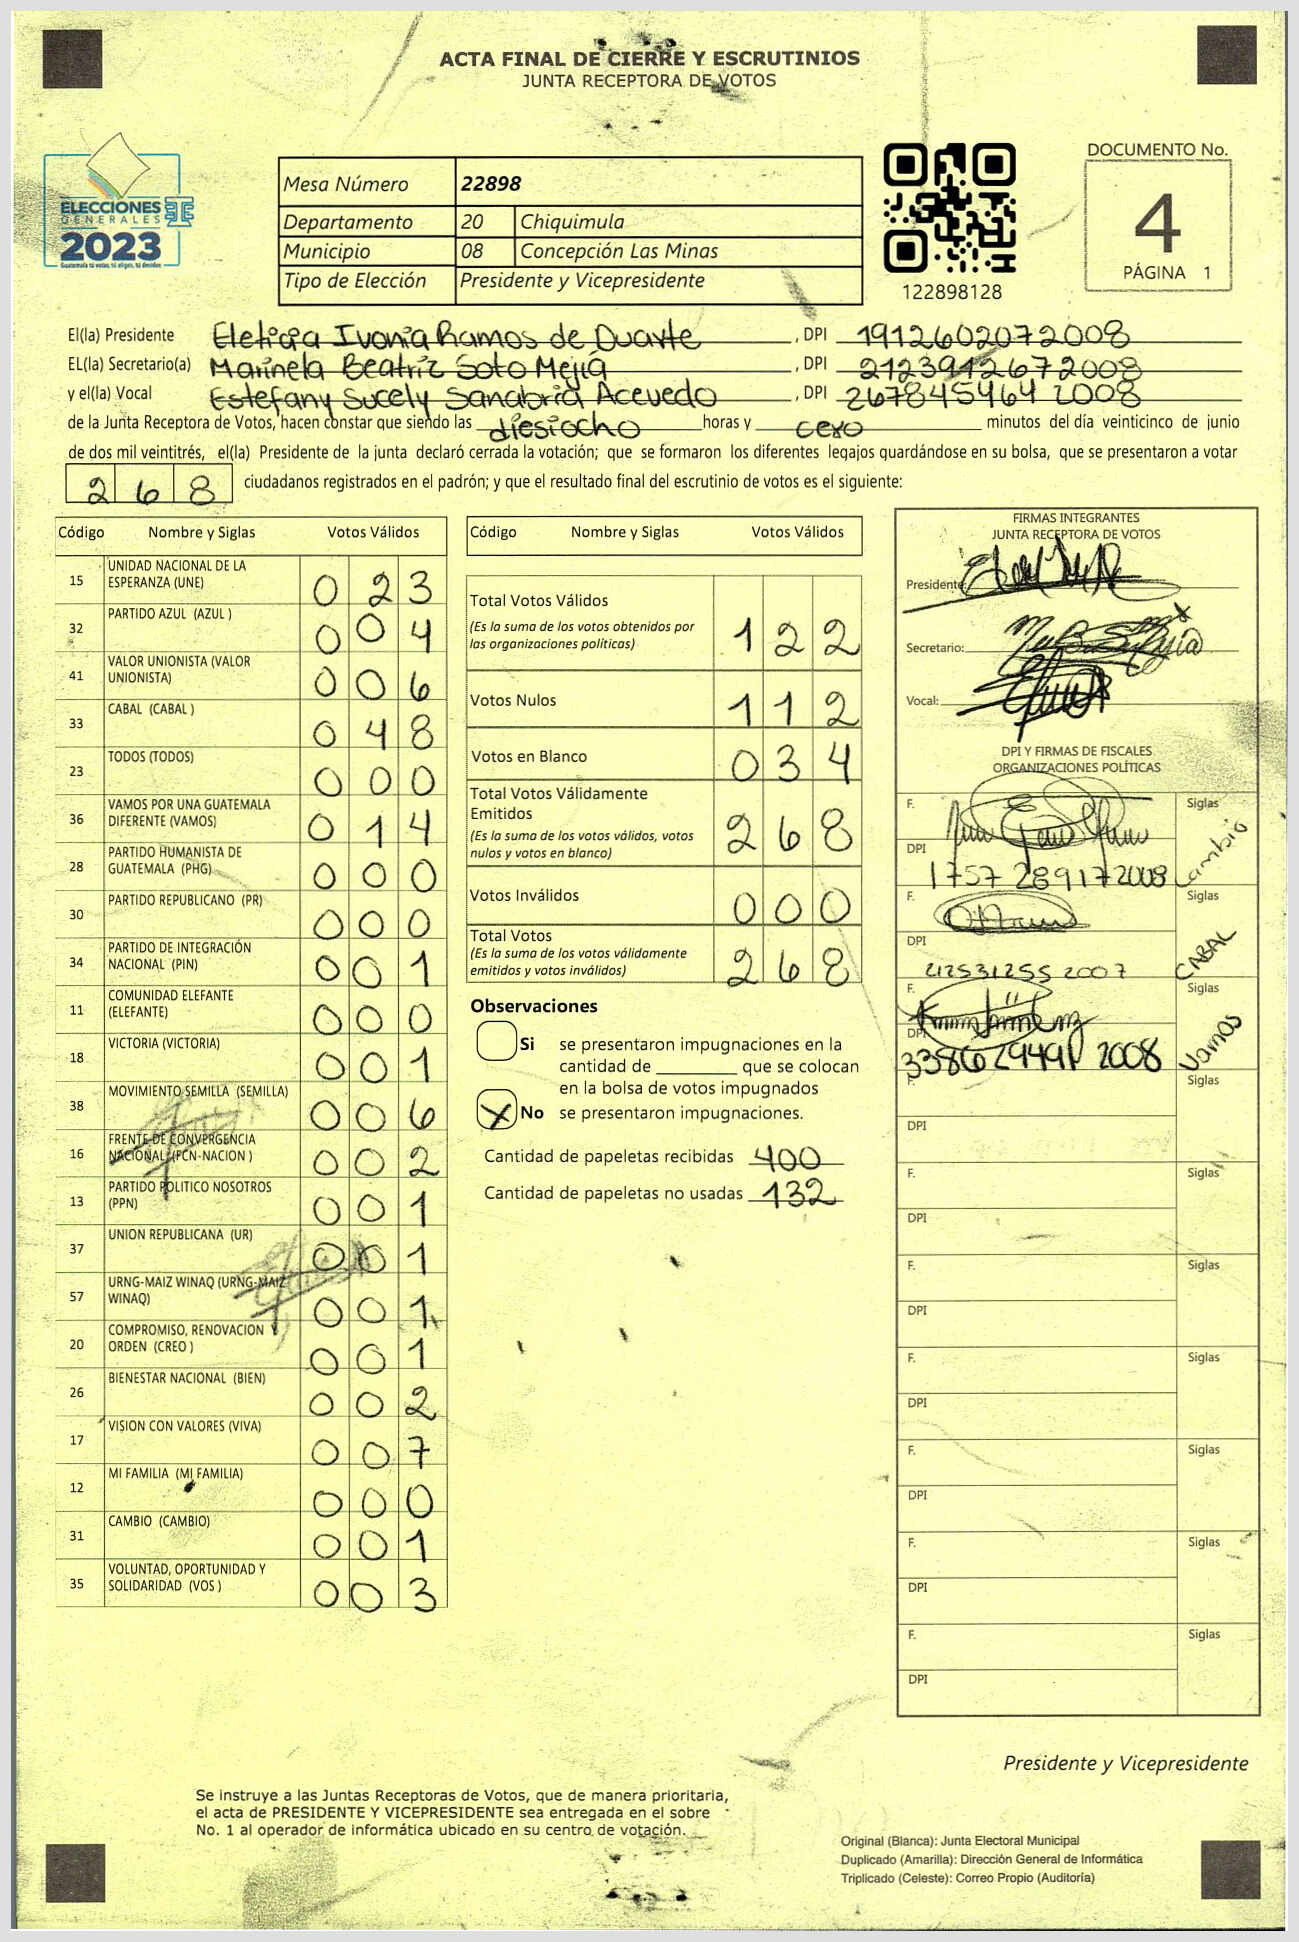 ACTA FINAL DE CIERRE Y ESCRUTINIOS
JUNTA RECEPTORA DE VOTOS
ELECCIONES
GENERALES
2023
Guatemala tú votas, tú eliges, tú decides
Mesa Número 22898
Departamento 20 Chiquimula
Municipio 08 Concepción Las Minas
Tipo de Elección Presidente y Vicepresidente
122898128
DOCUMENTO No.
4
PÁGINA 1
El(la) Presidente Eleticia Ivonia Ramos de Duarte, DPI 1912602072008
EL(la) Secretario(a) Marinela Beatriz Soto Mejía, DPI 2123912672008
y el(la) Vocal Estefany Sucely Sanabria Acevedo, DPI 267845464 2008
de la Junta Receptora de Votos, hacen constar que siendo las diesiocho horas y cero minutos del día veinticinco de junio
de dos mil veintitrés, el(la) Presidente de la junta declaró cerrada la votación; que se formaron los diferentes legajos guardándose en su bolsa, que se presentaron a votar
268 ciudadanos registrados en el padrón; y que el resultado final del escrutinio de votos es el siguiente:
Código Nombre y Siglas Votos Válidos
15 UNIDAD NACIONAL DE LA ESPERANZA (UNE) 023
32 PARTIDO AZUL (AZUL ) 004
41 VALOR UNIONISTA (VALOR UNIONISTA) 006
33 CABAL (CABAL ) 048
23 TODOS (TODOS) 000
36 VAMOS POR UNA GUATEMALA DIFERENTE (VAMOS) 014
28 PARTIDO HUMANISTA DE GUATEMALA (PHG) 000
30 PARTIDO REPUBLICANO (PR) 000
34 PARTIDO DE INTEGRACIÓN NACIONAL (PIN) 001
11 COMUNIDAD ELEFANTE (ELEFANTE) 000
18 VICTORIA (VICTORIA) 001
38 MOVIMIENTO SEMILLA (SEMILLA) 006
16 FRENTE DE CONVERGENCIA NACIONAL (FCN-NACION ) 002
13 PARTIDO POLITICO NOSOTROS (PPN) 001
37 UNION REPUBLICANA (UR) 001
57 URNG-MAIZ WINAQ (URNG-MAIZ WINAQ) 001
20 COMPROMISO, RENOVACION Y ORDEN (CREO ) 001
26 BIENESTAR NACIONAL (BIEN) 002
17 VISION CON VALORES (VIVA) 007
12 MI FAMILIA (MI FAMILIA) 000
31 CAMBIO (CAMBIO) 001
35 VOLUNTAD, OPORTUNIDAD Y SOLIDARIDAD (VOS ) 003
Código Nombre y Siglas Votos Válidos
Total Votos Válidos 122
(Es la suma de los votos obtenidos por
las organizaciones políticas)
Votos Nulos 112
Votos en Blanco 034
Total Votos Válidamente
Emitidos 268
(Es la suma de los votos válidos, votos
nulos y votos en blanco)
Votos Inválidos 000
Total Votos 268
(Es la suma de los votos válidamente
emitidos y votos inválidos)
Observaciones
Si se presentaron impugnaciones en la
cantidad de ________ que se colocan
en la bolsa de votos impugnados
X No se presentaron impugnaciones.
Cantidad de papeletas recibidas 400
Cantidad de papeletas no usadas 132
FIRMAS INTEGRANTES
JUNTA RECEPTORA DE VOTOS
Presidente:
Secretario:
Vocal:
DPI Y FIRMAS DE FISCALES
ORGANIZACIONES POLÍTICAS
F. Siglas
DPI 1757 28917 2008 Cambio
F. Siglas
DPI 2007 CABAL
F. Siglas
DPI 2008 Vamos
F. Siglas
DPI
F. Siglas
DPI
F. Siglas
DPI
F. Siglas
DPI
F. Siglas
DPI
F. Siglas
DPI
F. Siglas
DPI
Presidente y Vicepresidente
Se instruye a las Juntas Receptoras de Votos, que de manera prioritaria,
el acta de PRESIDENTE Y VICEPRESIDENTE sea entregada en el sobre
No. 1 al operador de informática ubicado en su centro de votación.
Original (Blanca): Junta Electoral Municipal
Duplicado (Amarilla): Dirección General de Informática
Triplicado (Celeste): Correo Propio (Auditoría)